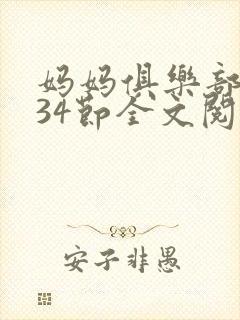 妈妈俱乐部
34节全文阅
安子非愚